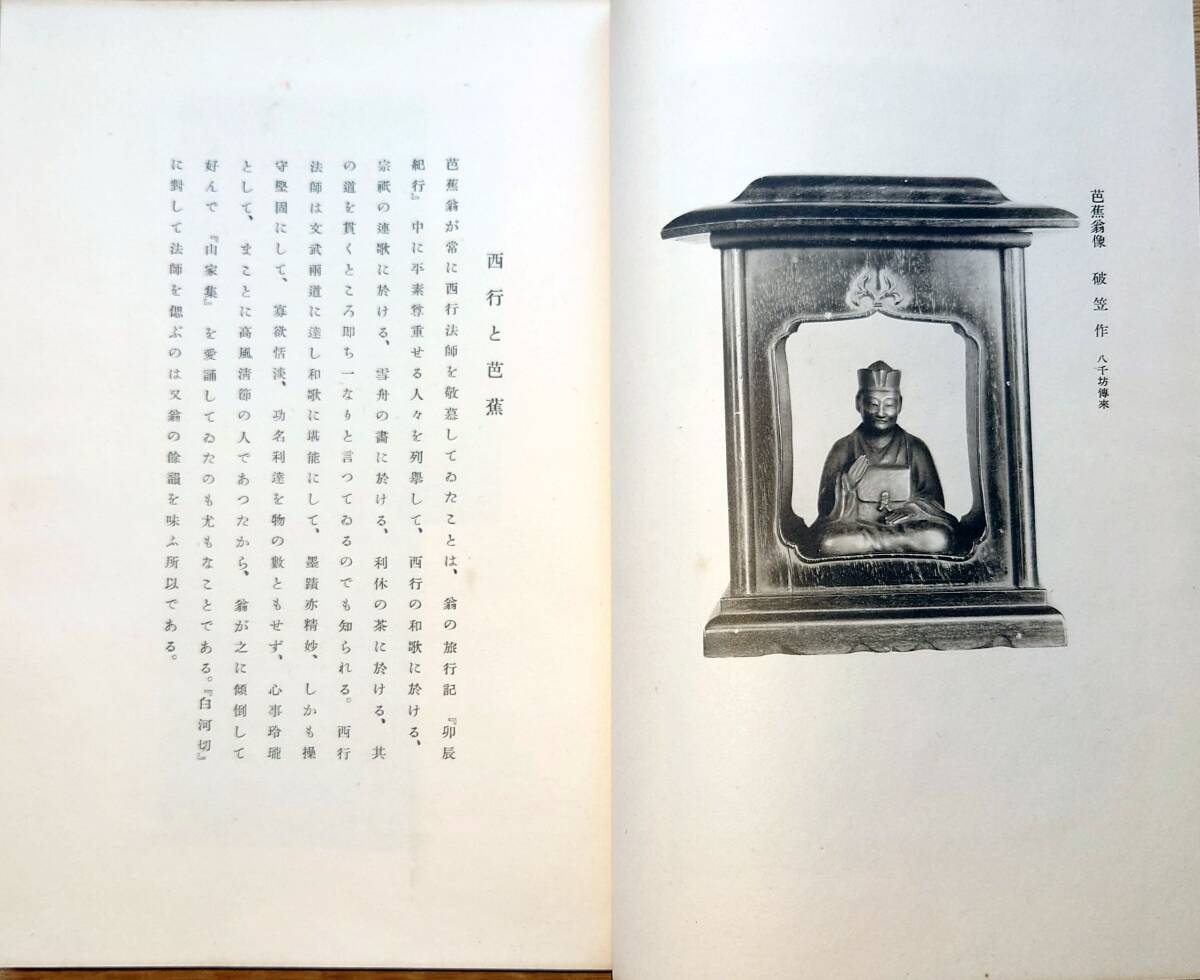 芭蕉翁像　破笠作　八千坊傳來
西行と芭蕉
芭蕉翁が常に西行法師を敬慕してゐたことは、翁の旅行記『卯辰
紀行』中に平素尊重せる人々を列擧して、西行の和歌に於ける、
宗祇の連歌に於ける、雪舟の畵に於ける、利休の茶に於ける、其
の道を貫くところ即ち一なりと言つてゐるのでも知られる。西行
法師は文武兩道に達し和歌に堪能にして、墨蹟亦精妙、しかも操
守堅固にして、寡欲恬淡、功名利達を物の數ともせず、心事玲瓏
として、まことに高風淸節の人であつたから、翁が之に傾倒して
好んで『山家集』を愛誦してゐたのも尤もなことである。『白河切』
に對して法師を偲ぶのは又翁の餘韻を味ふ所以である。